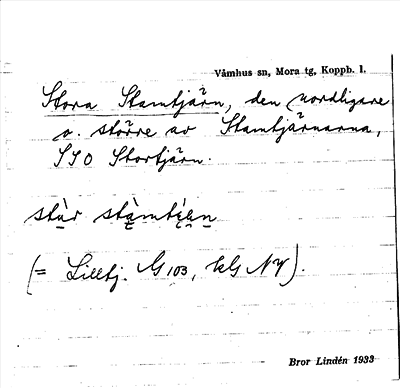 Våmhus sn, Mora tg, Koppb. l.
Stora Stamtjärn, den nordligare
o. större av Stamtjärnarna,
SSO Stortjärn.
stùr stàmtįęn
(= Lilltj. G 103, kG NV).
Bror Lindén 1933